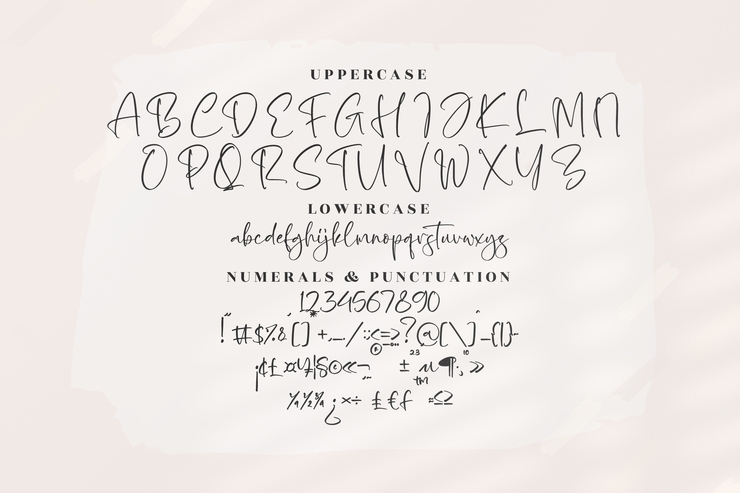 UPPERCASE
ABCDEFGHIJKLMN
OPQRSTUVWXYZ
LOWERCASE
abcdefghijklmnopqrstuvwxyz
NUMERALS & PUNCTUATION
1234567890
!"#$%&'()*+,-./:;<=>?@[\]^_{|}~
¡¢£¤¥¦§©«¬®¯°±²³µ¶·¸¹º»
¼½¾¿×÷ ₤€ƒ ≈Ω